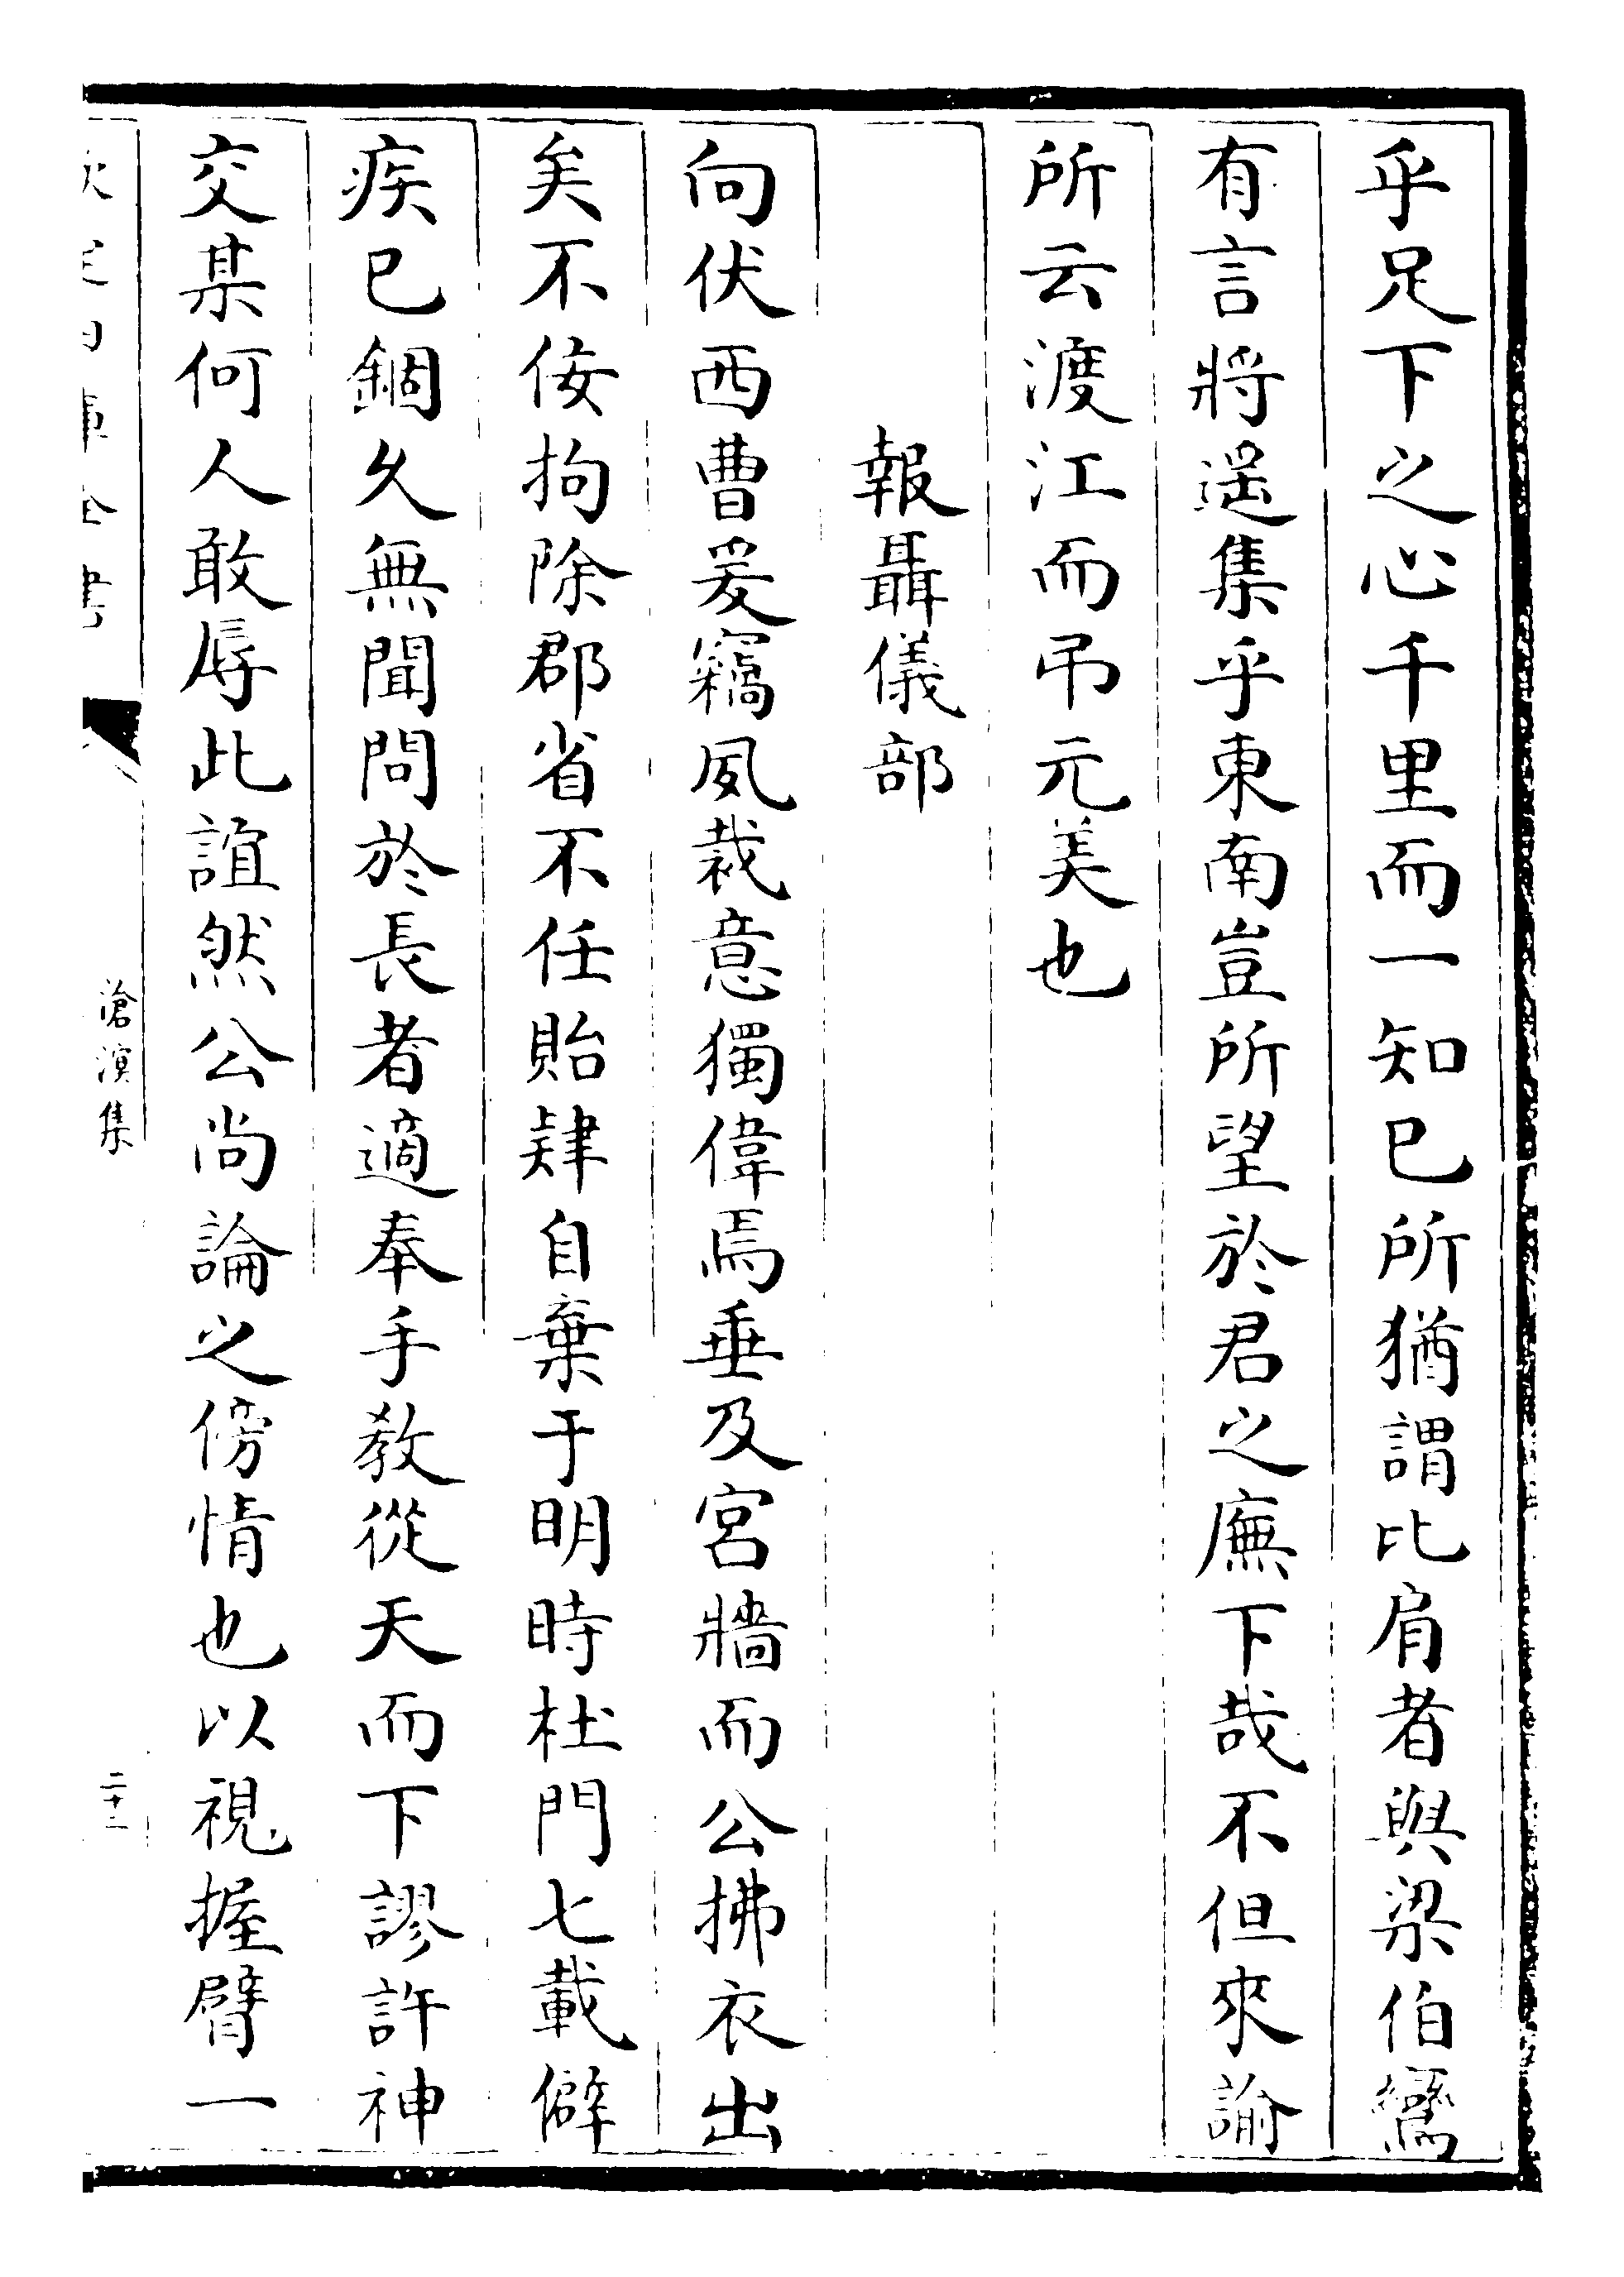 乎足下之心千里而一知己所猶謂比肩者與梁伯鸞
有言將遥集乎東南豈所望於君之廡下哉不但來諭
所云渡江而弔元美也
報聶儀部
向伏西曹爰竊風裁意獨偉焉垂及宮牆而公拂衣出
矣不佞拘除郡省不任貽肄自棄于明時杜門七載僻
疾已錮久無聞問於長者適奉手教從天而下謬許神
交某何人敢辱此誼然公尚論之傍情也以視握臂一
欽定四庫全書
滄溟集
二十二